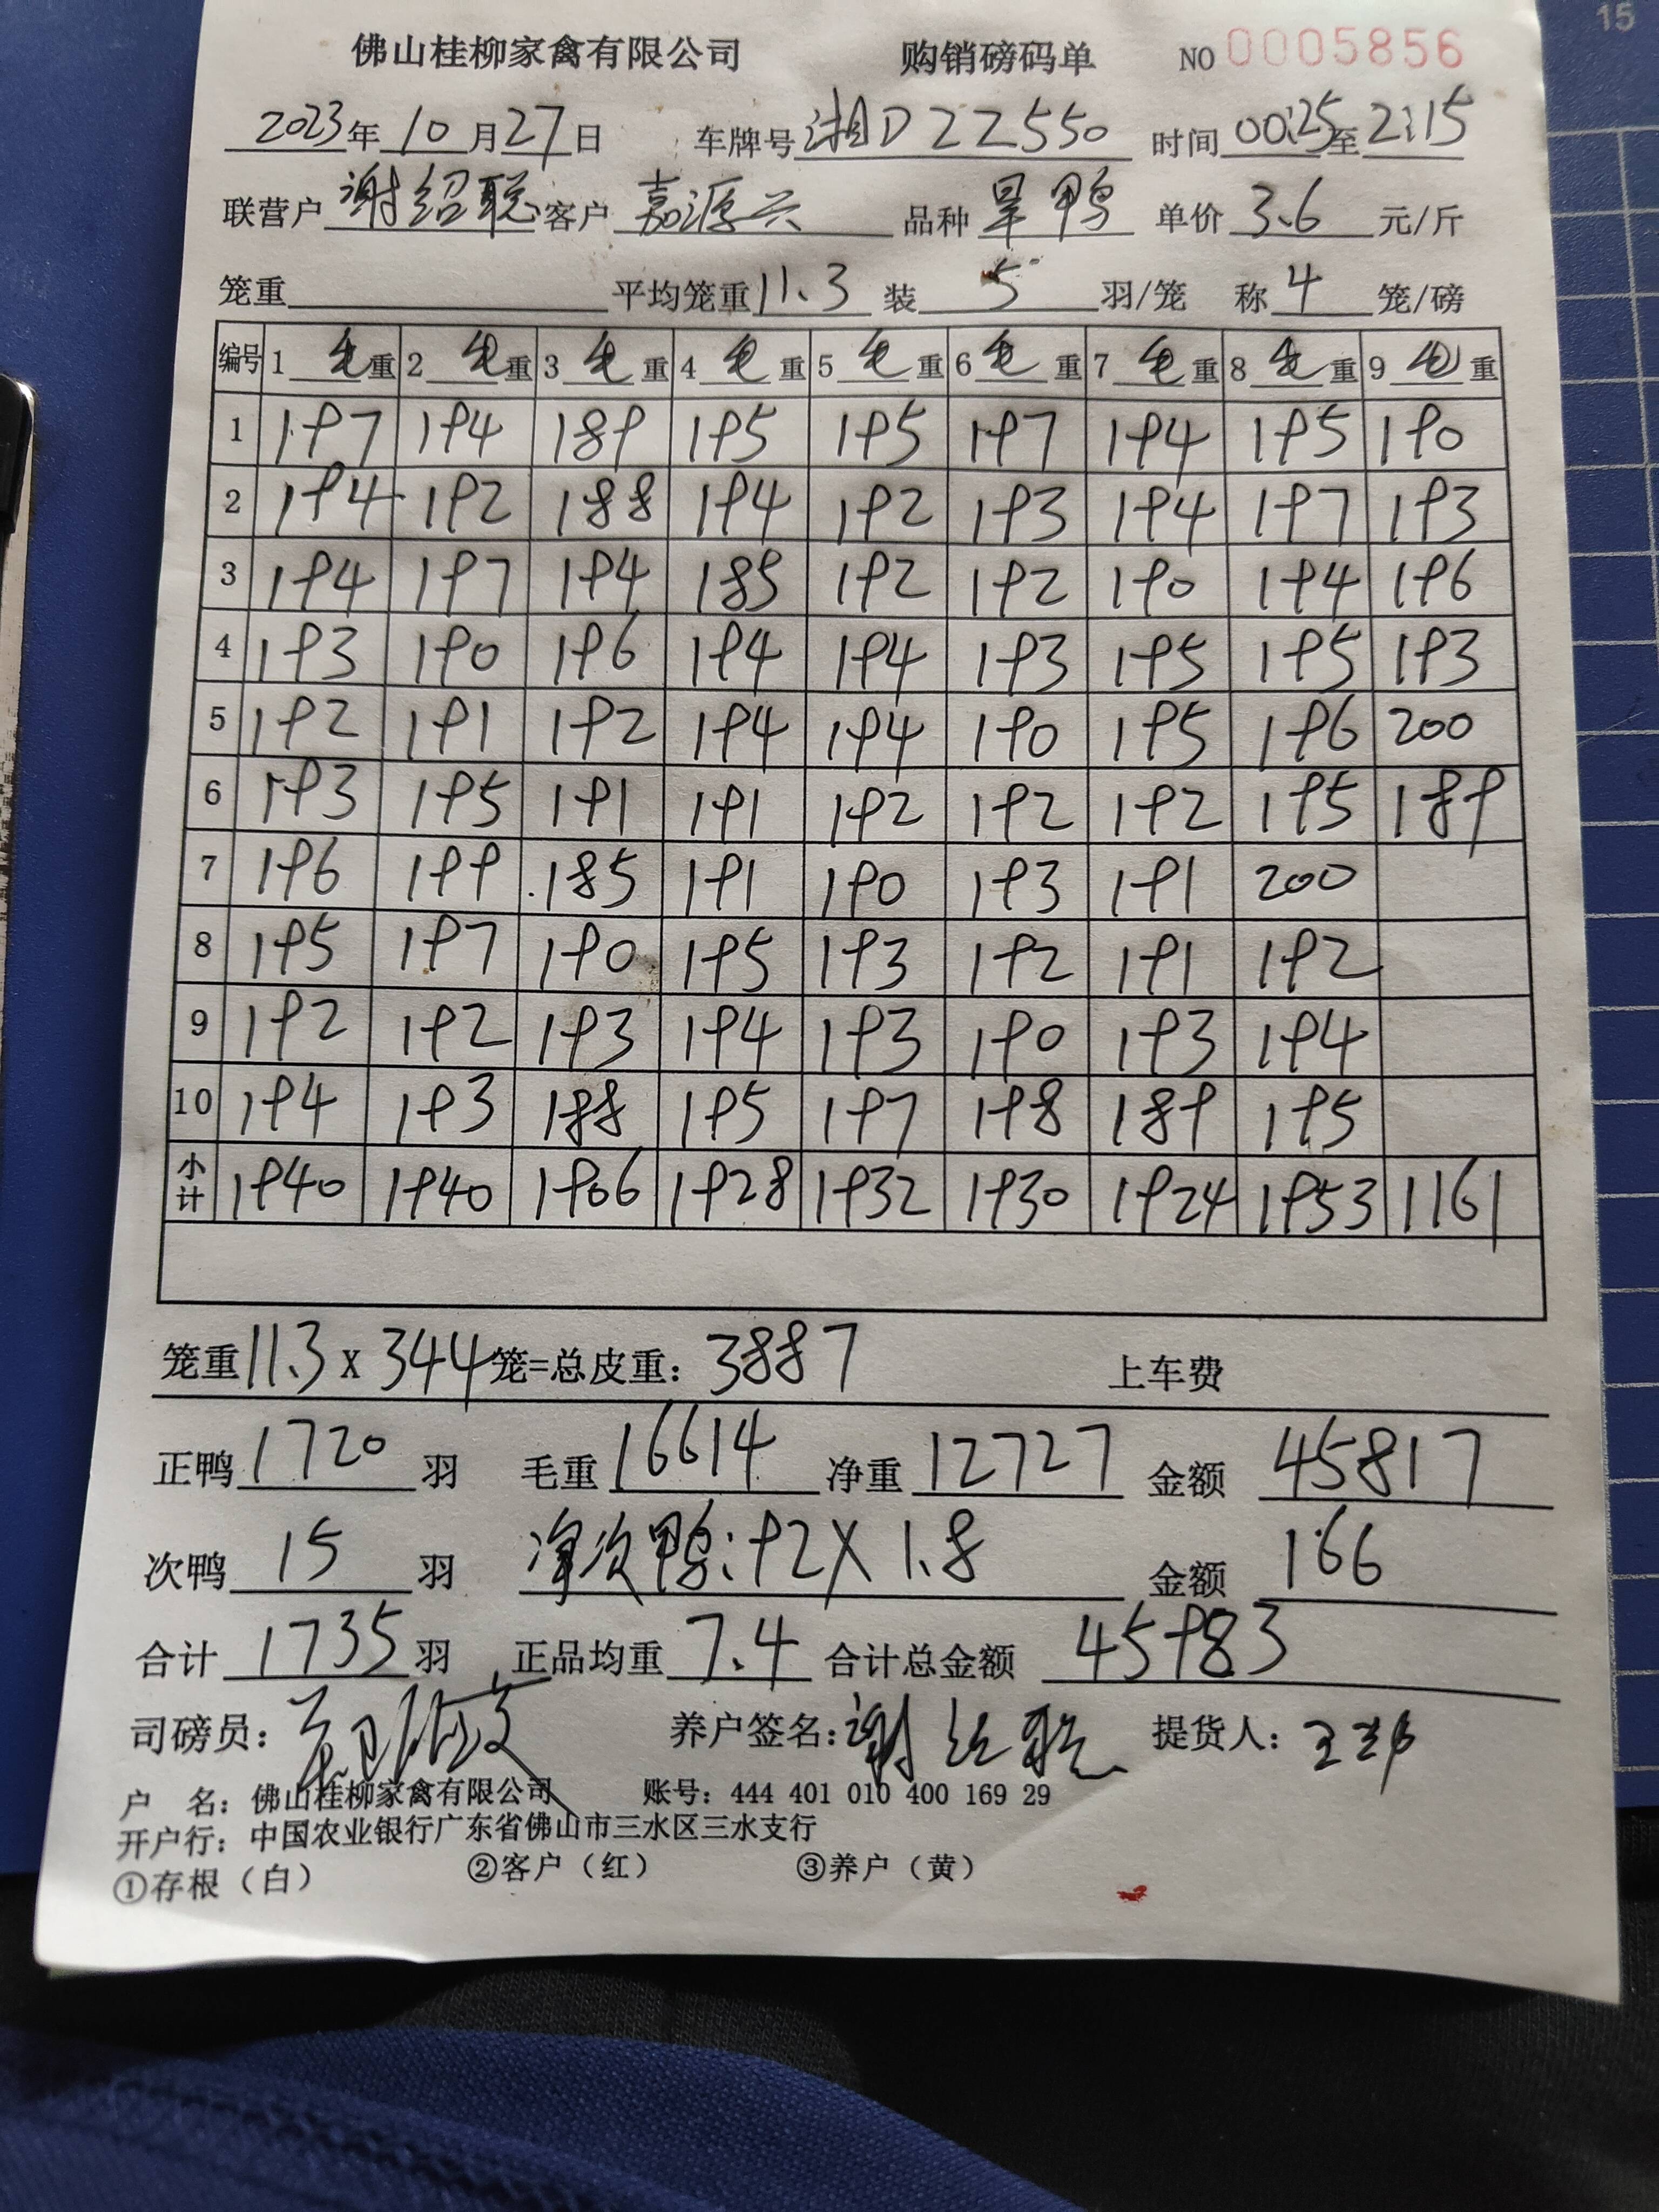 15
佛山桂柳家禽有限公司 购销磅码单 NO 0005856
2023年10月27日 车牌号 湘DZZ550 时间 00:25至2:15
联营户 谢绍聪 客户 嘉源兴 品种 旱鸭 单价 3.6 元/斤
笼重 平均笼重 11.3 装 5 羽/笼 称 4 笼/磅
编号 1 毛重 2 毛重 3 毛重 4 毛重 5 毛重 6 毛重 7 毛重 8 毛重 9 毛重
1 197 194 189 195 195 197 194 195 190
2 194 192 188 194 192 193 194 197 193
3 194 197 194 185 192 192 190 194 196
4 193 190 196 194 194 193 195 195 193
5 192 191 192 194 194 190 195 196 200
6 193 195 191 191 192 192 192 195 189
7 196 199 185 191 190 193 191 200
8 195 197 190 195 193 192 191 192
9 192 192 193 194 193 190 193 194
10 194 193 188 195 197 198 189 195
小计 1940 1940 1906 1928 1932 1930 1924 1953 1161
笼重 11.3 X 344 笼=总皮重: 3887 上车费
正鸭 1720 羽 毛重 16614 净重 12727 金额 45817
次鸭 15 羽 净次鸭: 92X1.8 金额 166
合计 1735 羽 正品均重 7.4 合计总金额 45983
司磅员: 养户签名: 谢绍聪 提货人:
户 名: 佛山桂柳家禽有限公司 账号: 444 401 010 400 169 29
开户行: 中国农业银行广东省佛山市三水区三水支行
①存根（白） ②客户（红） ③养户（黄）